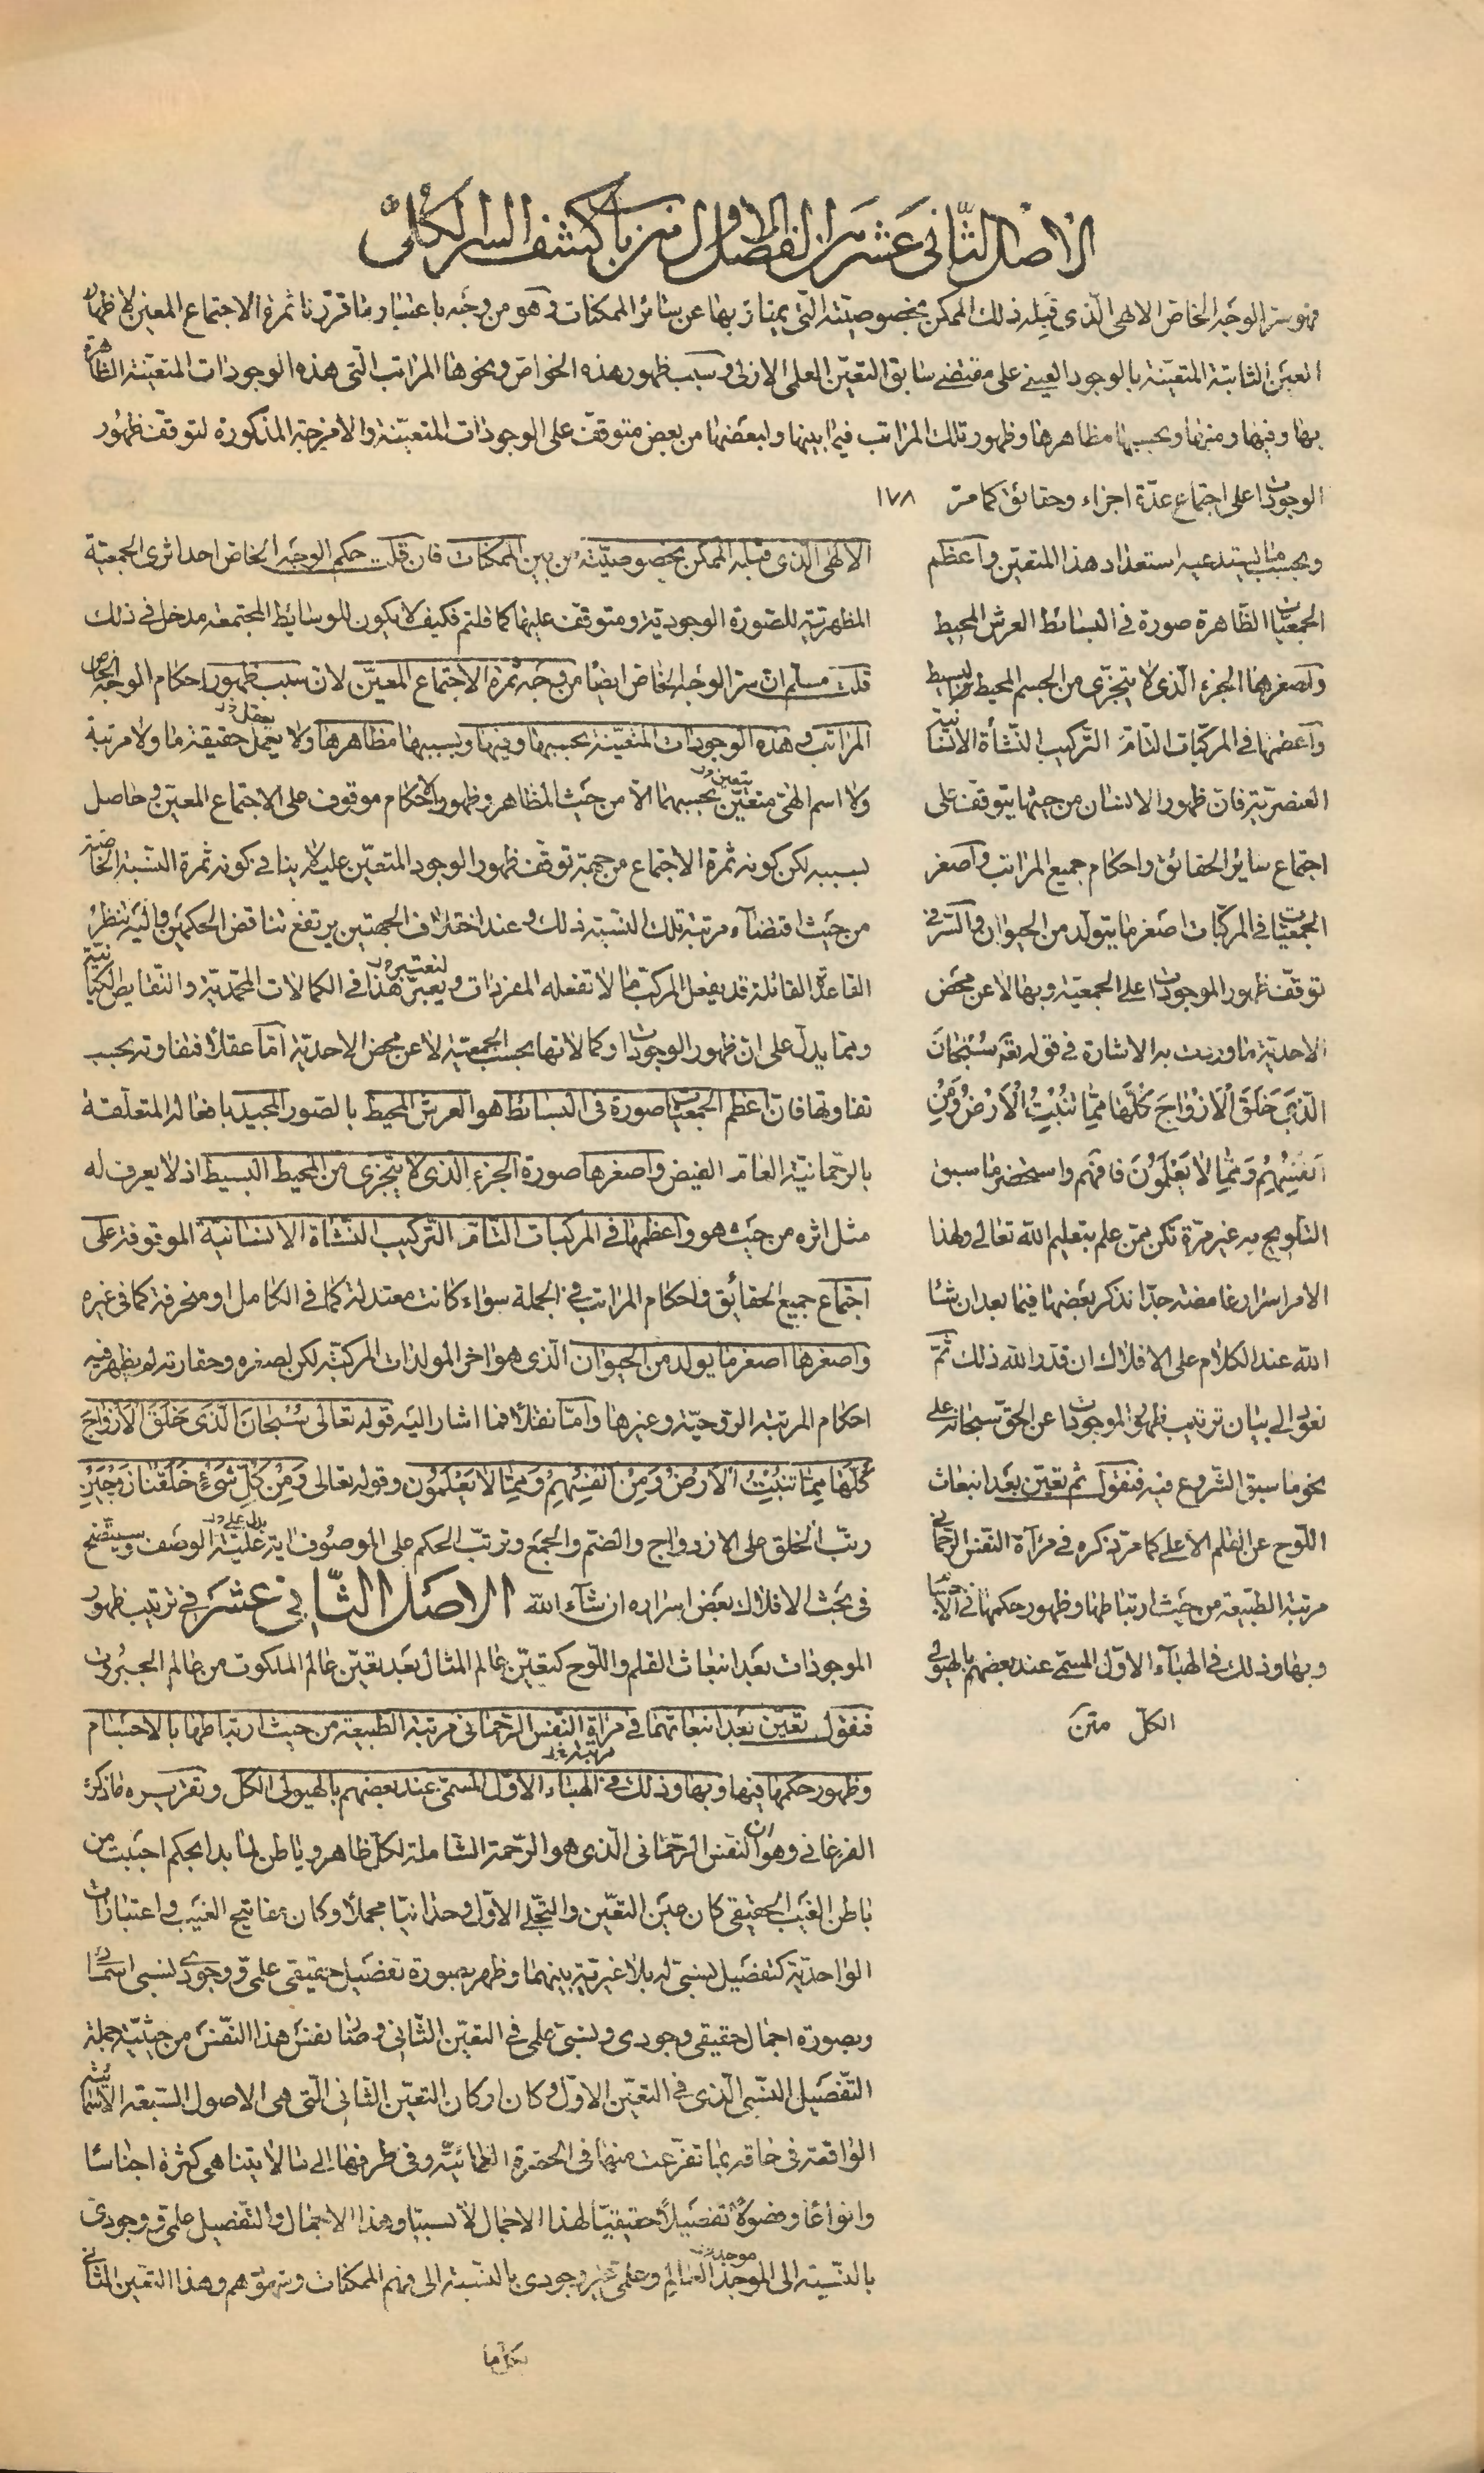 الاصل الثّانى عشر من الفصل الاول من باب كشف السر الكلى
فهو سر الوجه الخاص الالهى الّذى قبله ذلك الممكن بخصوصيّته الّتى يمتاز بها عن سائر الممكنات وهو من وجه باعتبار ما قررنا ثمرة الاجتماع المعين لاظهار
العين الثابتة المتعينة بالوجود العينى على مقتضى سابق التعيّن العلمى الازلى وسبب ظهور هذه الخواص ونحوها المراتب الّتى هذه الوجودات المتعيّنة الظاهرة
بها وفيها ومنها وبحسبها مظاهرها وظهور تلك المراتب فيما بينها ولبعضها من بعض متوقف على الوجودات المتعيّنة والامزجة المذكورة لتوقف ظهور
الوجودات على اجتماع عدّة اجزاء وحقائق كما مرّ ١٧٨
وبحسب ما يستدعيه استعداد هذا المتعين واعظم
الجمعيات الظّاهرة صورة فى البسائط العرش المحيط
واصغرها الجزء الّذى لا يتجزى من الجسم المحيط البسيط
واعظمها فى المركّبات التامّة التركيب النّشأة الانسانية
العنصريّة فان ظهور الانسان من حيثها يتوقف على
اجتماع ساير الحقائق واحكام جميع المراتب واصغر
الجمعيات فى المركّبات اصغر ما يتولد من الحيوان والسّر فى
توقّف ظهور الموجودات على الجمعية وبها لا عن محض
الاحديّة ما وردت به الاشارة فى قوله تعالى سُبْحَانَ
الَّذِى خَلَقَ الْاَزْوَاجَ كُلَّهَا مِمَّا تُنْبِتُ الْاَرْضُ وَمِنْ
اَنْفُسِهِمْ وَمِمَّا لَا يَعْلَمُونَ فافهم واستحضر ما سبق
التلويح به غير مرّة تكن ممّن علم بتعليم اللّه تعالى ولهذا
الامر اسرار غامضة جدّا نذكر بعضها فيما بعد ان شاء
اللّه عند الكلام على الافلاك ان قدر اللّه ذلك ثمّ
نعود الى بيان ترتيب ظهور الموجودات عن الحقّ سبحانه على
نحو ما سبق الشروع فيه فنقول ثم تعيّن بعد انبعاث
اللّوح عن القلم الاعلى كما مرّ ذكره فى مرآة النّفس الرّحمانى
مرتبة الطبيعة من حيث ارتباطها وظهور حكمها فى الاجسام
وبها وذلك فى الهباء الاوّل المسمّى عند بعضهم بالهيولى
الكلّ متن
الالهى الّذى قبله الممكن بخصوصيّته من بين الممكنات فان قلت حكم الوجه الخاص احد اثرى الجمعية
المظهرتيّة للصورة الوجودية ومتوقف عليها كما قلتم فكيف لا يكون للوسايط المجتمعة مدخل فى ذلك
قلت مسلم ان سر الوجه الخاص ايضًا من وجه ثمرة الاجتماع المعيّن لان سبب ظهور احكام الوجه الخاص
المراتب وهذه الوجودات المتعيّنة بحسبها وفيها وبسببها مظاهرها ولا يعمل حقيقة ما ولا مرتبة
ولا اسم الهىّ متعيّن بحسبهما الّا من حيث المظاهر وظهور الاحكام موقوف على الاجتماع المعيّن وحاصل
بسببه لكن كونه ثمرة الاجتماع من جهة توقف ظهور الوجود المتعيّن عليه لا ينافى كونه ثمرة النّسبة الخاصّة
من حيث اقتضاء مرتبة تلك النسبة ذلك وعند اختلاف الجهتين يرتفع تناقض الحكمين واليه ينظر
القاعدة القائلة قد يفعل المركّب ما لا تفعله المفردات ويعبّر هذا فى الكمالات المحمّديّة والنّقايص الكيانيّة
وممّا يدل على انّ ظهور الوجودات وكمالاتها بحسب الجمعيّة لا عن محض الاحديّة امّا عقلًا فتفاوته بحسب
تفاوتها فان اعظم الجمعيات صورة فى البسائط هو العرش المحيط بالصور المجيد بافعاله المتعلّقة
بالرّحمانيّة العامّة الفيض واصغرها صورة الجزء الّذى لا يتجزى من المحيط البسيط اذ لا يعرف له
مثل اثره من حيث هو واعظمها فى المركبات التامّة التّركيب النّشاة الانسانيّة الموقوفة على
اجتماع جميع الحقائق واحكام المراتب فى الجملة سواء كانت معتدلة كما فى الكامل او منحرفة كما فى غيره
واصغرها اصغر ما يولد من الحيوان الّذى هو اخر المولدات المركبّة لكن لصغره وحقارته لم يظهر فيه
احكام المرتبة الروحيّة وغيرها وامّا نقلًا فما اشار اليه قوله تعالى سُبْحَانَ الَّذِى خَلَقَ الْاَزْوَاجَ
كُلَّهَا مِمَّا تُنْبِتُ الْاَرْضُ وَمِنْ اَنْفُسِهِمْ وَمِمَّا لَا يَعْلَمُونَ وقوله تعالى وَمِنْ كُلِّ شَىْءٍ خَلَقْنَا زَوْجَيْنِ
رتّب الخلق على الازدواج والضّم والجمع وترتّب الحكم على الموصوف اية علّيّة الوصف وسيتّضح
فى بحث الافلاك بعض اسراره ان شاء اللّه الاصل الثّانى عشر فى ترتيب ظهور
الموجودات بعد انبعاث القلم واللّوح كتعيّن عالم المثال بعد تعيّن عالم الملكوت من عالم الجبروت
فنقول تعيّن بعد انبعاثهما فى مراة النّفس الرّحمانى مرتبة الطّبيعة من حيث ارتباطها بالاجسام
وظهور حكمها فيها وبها وذلك فى الهباء الاوّل المسمّى عند بعضهم بالهيولى الكل وتقريره ما ذكره
الفرغانى وهو ان النفس الرّحمانى الّذى هو الرّحمة الشّاملة لكلّ ظاهر وباطن لمّا بدا بحكم احببت من
باطن الغيب الحقيقى كان عين التعيّن والتجّلى الاوّل وحدانيّا مجملًا وكان مفاتيح الغيب واعتبارات
الواحديّة كتفصيل نسبىّ له بلا غيريّة بينهما وظهر بصورة تفضيل حقيقى علمى ووجودى نسبى اسمائى
وبصورة اجمال حقيقى وجودى ونسبىّ علمى فى التعيّن الثّانى وصار نفس هذا النّفس من حيثيّة جملة
التّفصيل النسّبى الّذى فى التعيّن الاوّل وكان اركان التعيّن الثّانى الّتى هى الاصول السّبعة الاسمائيّة
الواقعة فى حاقه بما تفرّعت منها فى الحضرة العمائيّة وفى طرفيها الى ما لا يتناهى كثرة اجناسًا
وانواعًا وفصولًا تفصيلًا حقيقيّا لهذا الاجمال لا نسبيّا وهذا الاجمال والتّفصيل علمى ووجودى
بالنّسبة الى الموجد العالم وعلمى غير وجودى بالنسبة الى فهم الممكنات وشهودهم وهذا التعين الثّانى